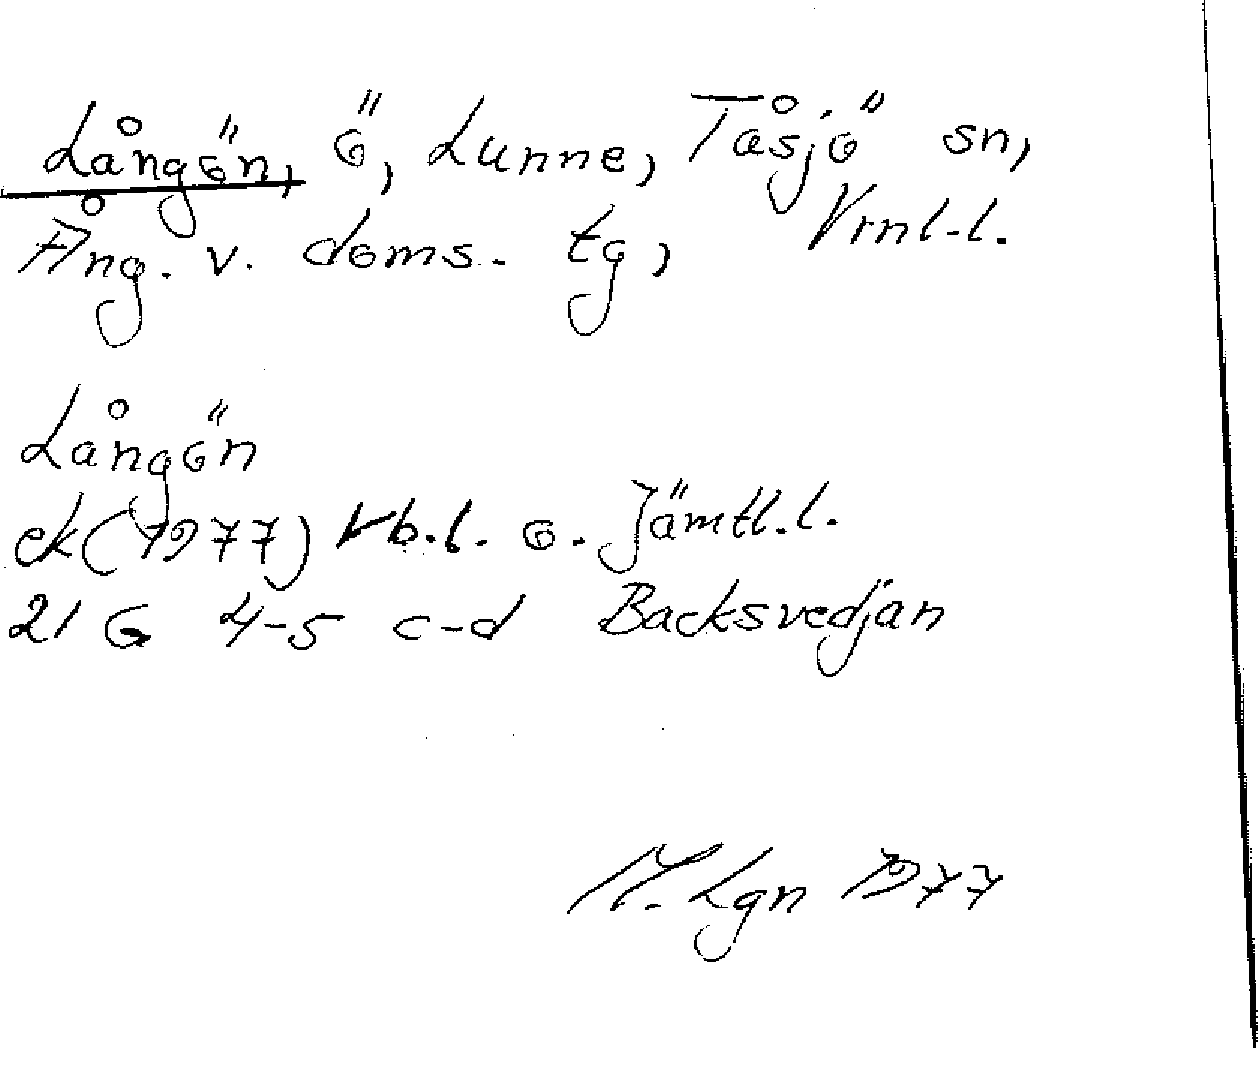 Långön, ö, Lunne, Tåsjö sn,
Ång. v. doms. tg, Vrnl.l.
Långön
ek (1977) Vb.l. o. Jämtl.l.
21 G 4-5 c-d Backsvedjan
M. Lgn 1977